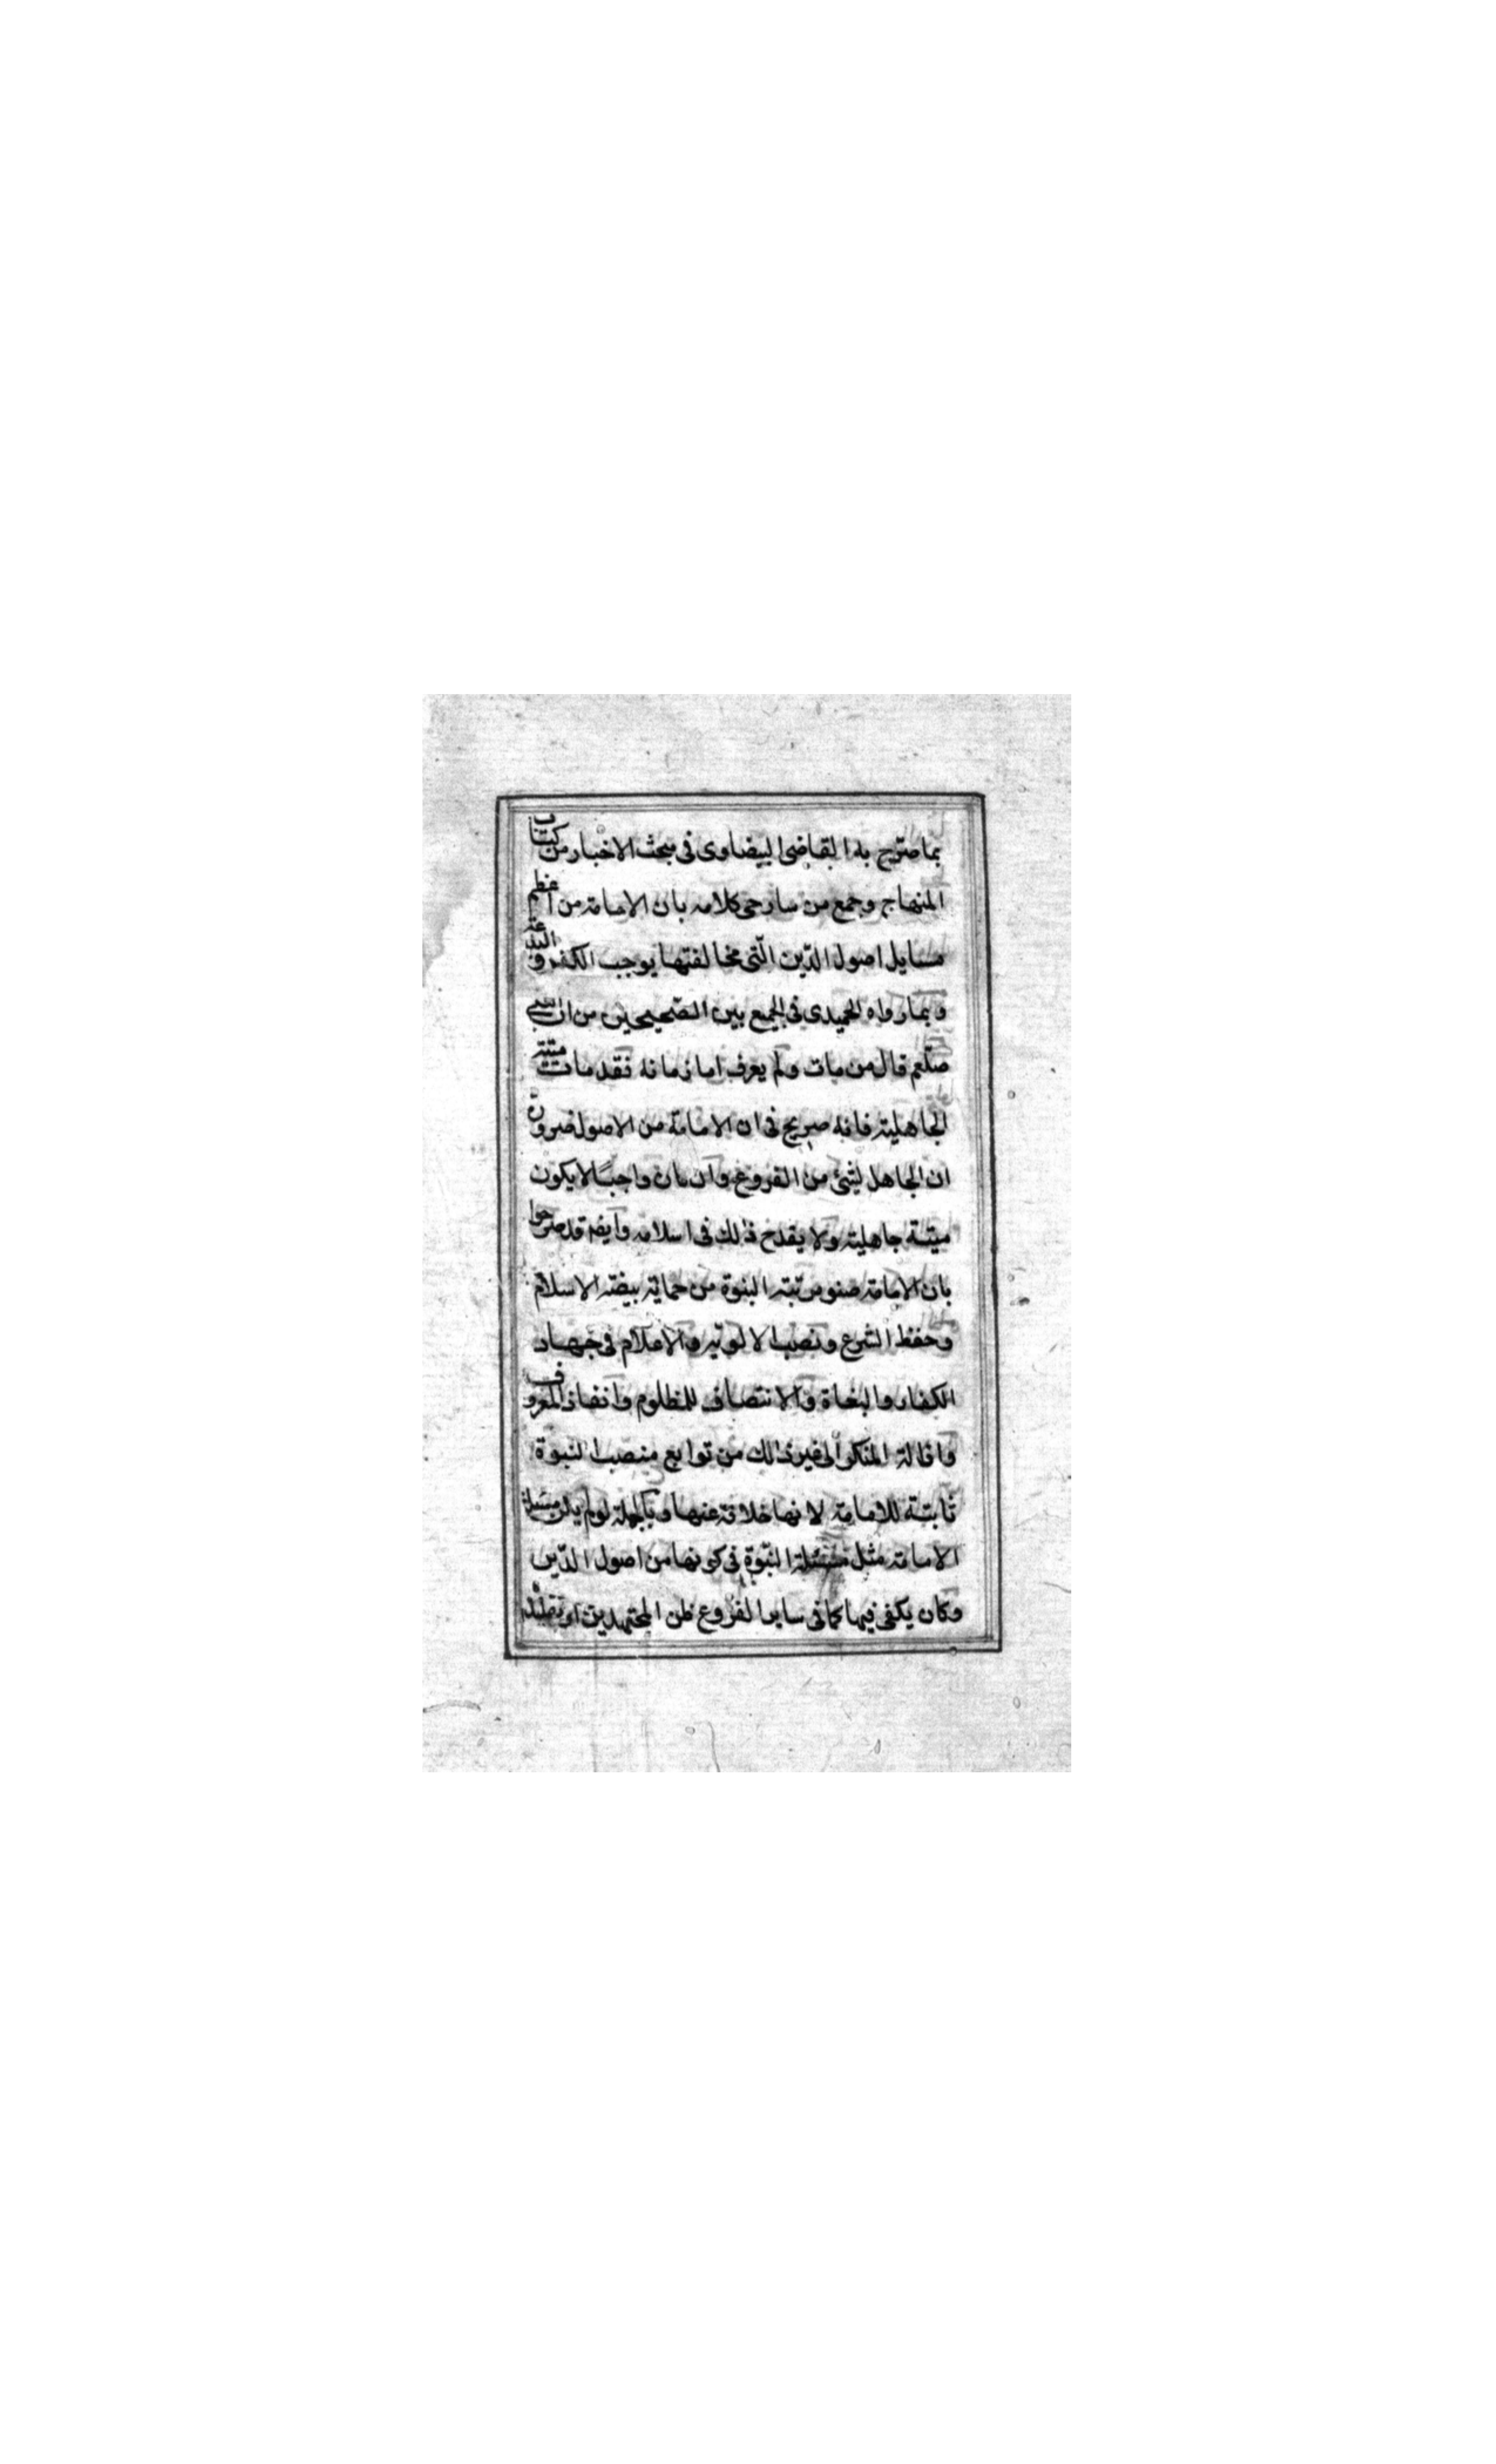 بما صرّح به القاضى البيضاوى فى مبحث الاخبار من كتاب
المنهاج وجمع من سارحى كلامه بان الامامة من اعظم
مسايل اصول الدّين الّتى مخالفتها يوجب الكفر و البدعة
و بما رواه الحميدى فى الجمع بين الصّحيحين من ان النبى
صلّعم قال من مات ولم يعرف امام زمانه فقد مات ميتة
الجاهلية فانه صريح فى ان الامامة من الاصول ضرورة
ان الجاهل لشئ من الفروع وان كان واجبًا لا يكون
ميتة جاهلية ولا يقدح ذلك فى اسلامه وايضا قد صرحوا
بان الامامة صنو مرتبة النبوة من حماية بيضة الاسلام
وحفظ الشرع ونصب الالوية والاعلام فى جهاد
الكفار والبغاة والانتصاف للمظلوم وانفاذ المعروف
واقالة المنكر الى غير ذلك من توابع منصب النبوة
ثابتة للامامة لانها خلافة عنها وبالجملة لو لم يكن مسئلة
الامامة مثل مسئلة النبّوة فى كونها من اصول الدّين
وكان يكفى فيها كما فى ساير الفروع ظن المجتهدين او تقليد